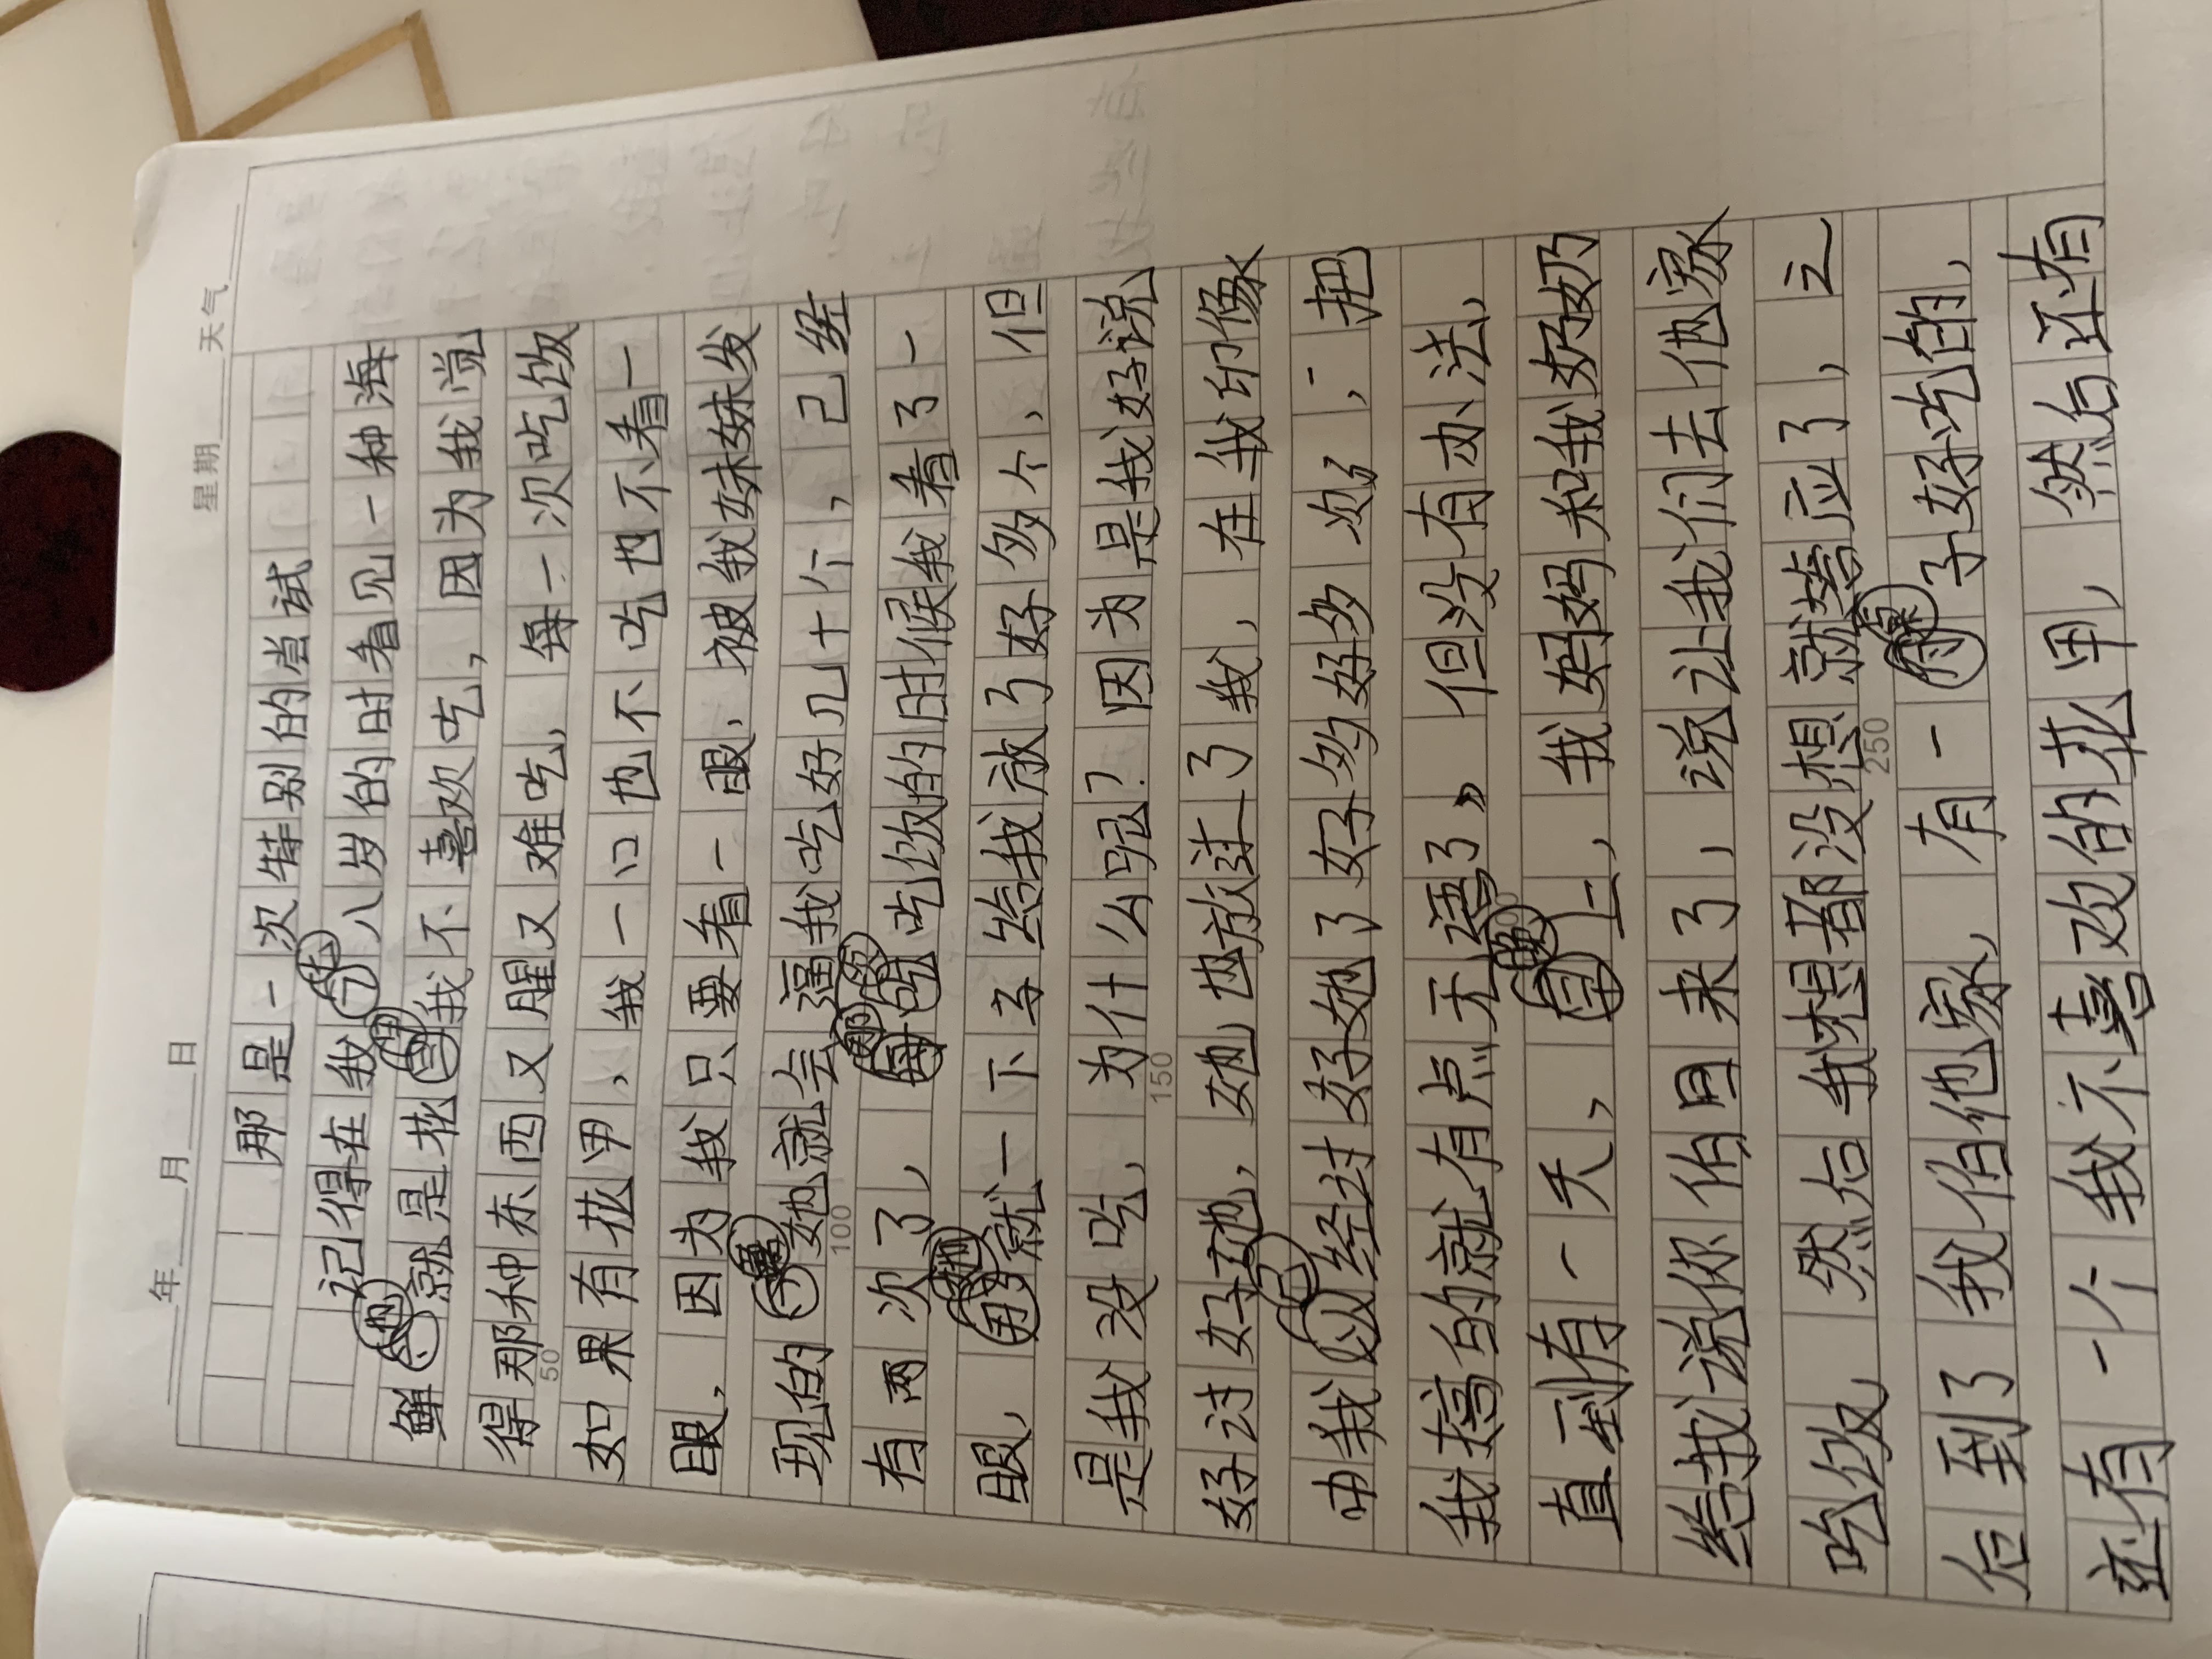 年 月 日 星期 天气
那是一次特别的尝试
记得在我七八岁的时看见一种海
鲜他就是花甲我不喜欢吃,因为我觉
得那种东西又腥又难吃,每一次吃饭
50
如果有花甲,我一口也不吃也不看一
眼,因为我只要看一眼,被我妹妹发
现的话她就会逼我吃好几十个,己经
100
有两次了,那次吃饭的时候我看了一
眼,她就一下子给我放了好多个,但
是我没吃,为什么呢?因为是我好说
150
好过好她,她也放过了我,在我印像
中我已经过好她了好多好多次了,一把
我搞的就有点无语了,但没有办法,
直到有一天,晚上,我妈妈和我奶奶
给我说你伯月来了,说让我们去他家
吃饭,然后我想都没想就答应了,之
250
后到了我伯他家,有一桌子好吃的,
还有一个我不喜欢的花甲,然后还有